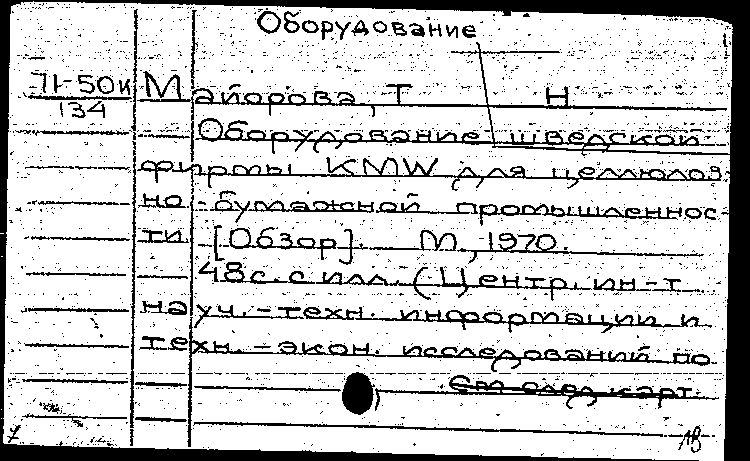 Оборудование
71-50к
134
Майорова, Т Н
Оборудование шведской
фирмы KMW для целлюлоз-
но-бумажной промышленнос-
ти [Обзор]. М., 1970.
48с. с илл. (Центр. ин-т
науч.-техн. информации и
техн.-экон. исследований по
См след карт.
18